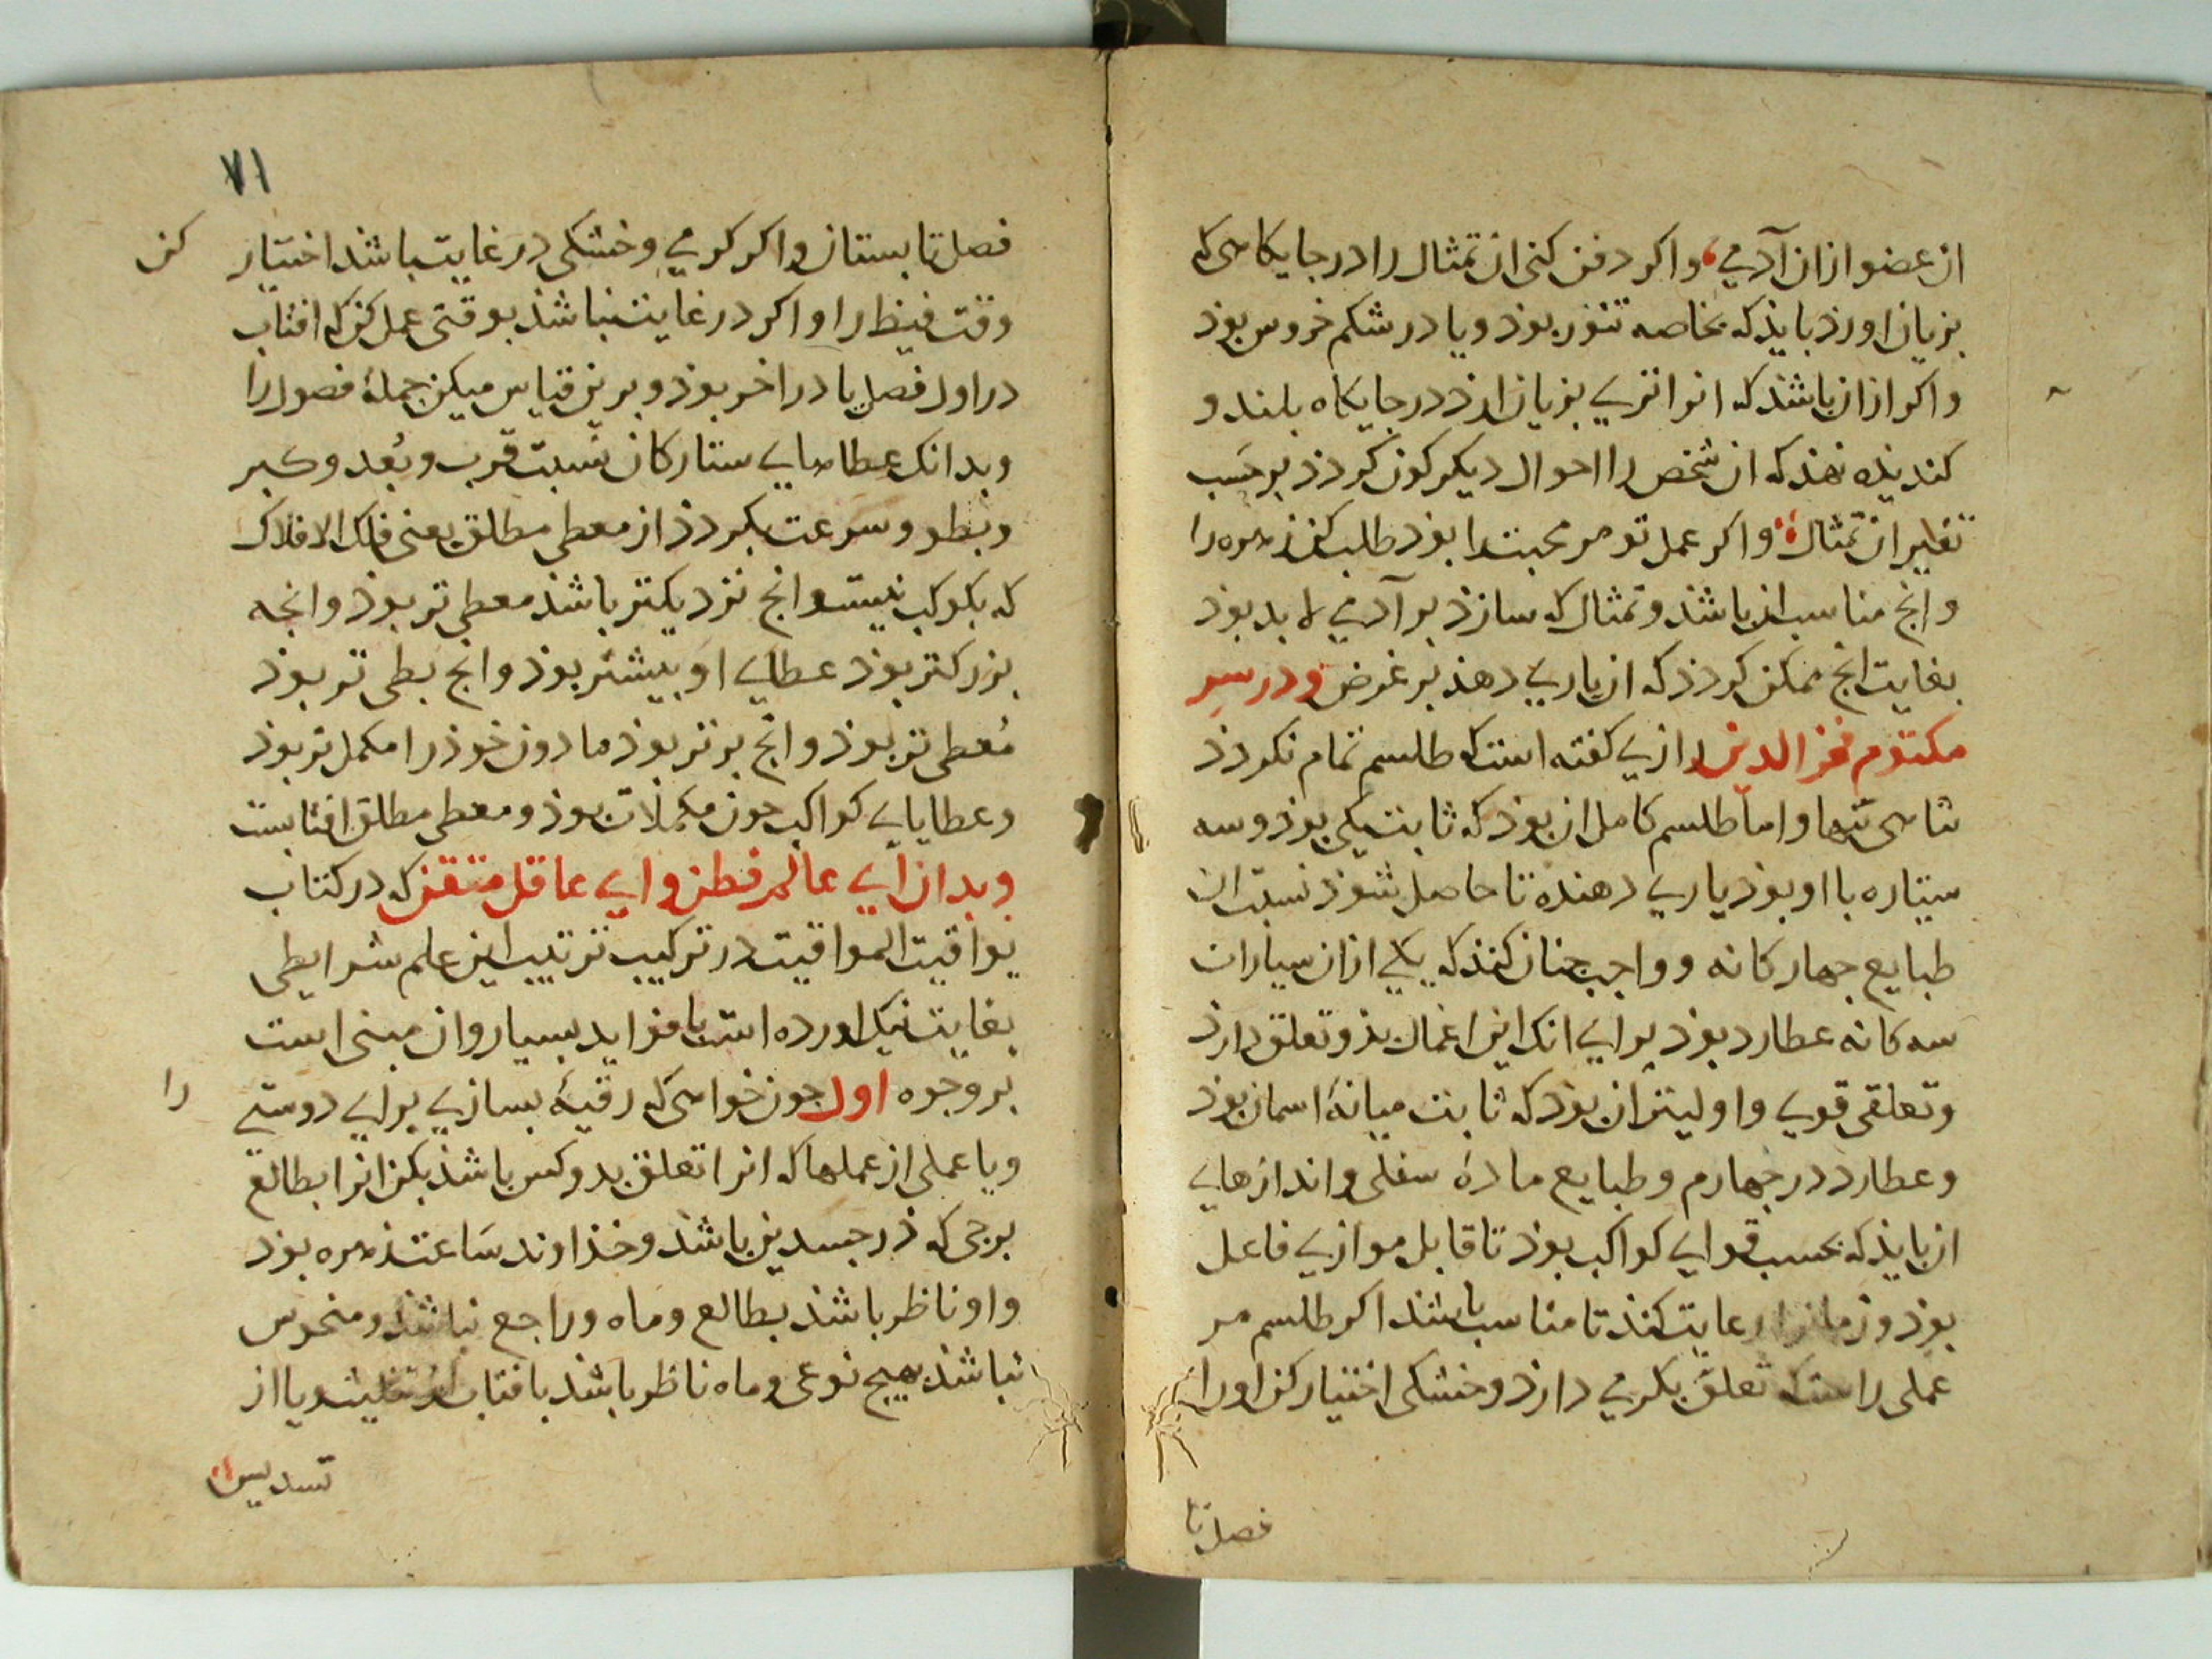 ان عضو از ان آدمی واکر دفن کنی ان تمثال را در جایکاهی که
بزیان اورد بایذ که بخاصه تنور بوذ ویا در شکم خروس بوذ
واکر از ان باشذ که انرا تری بزیان ارذ در جایکاه بلند و
کندیذه نهذ که ان شخص را احوال دیکر کون کردذ بر حسب
تغایر ان تمثال واکر عمل تو مر محبت را بوذ طلب کن زهره را
وانج مناسب ان باشذ وتمثال که سازذ بر آدمی لا بد بوذ
بغایت انج ممکن کردذ که ان یاری دهذ بر غرض ودر سر
مکتوم فخر الدین رازی کفته است که طلسم تمام نکردذ
تنها واما طلسم کامل ان بوذ که ثابت یکی بوذ وسه
سیتاره با او بوذ یاری دهنده تا حاصل شوذ نسبت ان
طبایع جهار کانه وواجب جنان کنذ که یکی از ان سیارات
سه کانه عطارد بوذ برای انک این اعمال بذو تعلق دارذ
وتعلقی قوی واولیتر ان بوذ که ثابت میانهٔ اسمان بوذ
وعطارد در جهارم وطبایع مادهٔ سفلی واندازهای
ان بایذ که بحسب قوای کواکب بوذ تا قابل موازی فاعل
بوذ وزمانرا رعایت کنذ تا مناسب باشذ اکر طلسم مر
عملی راست که تعلق بکرمی دارذ وخشکی اختیار کن اورا
فصل تا
۷۱
فصل تابستان واکر کرمی وخشکی در غایت باشذ اختیار کن
وقت قیظ را واکر در غایت نباشذ بوقتی عمل کن که افتاب
در اول فصل یا در اخر بوذ وبرین قیاس میکن جملهٔ فصول را
وبدانک عطاهای ستارکان نسبت قرب وبُعد وکبر
وبطو وسرعت بکردذ از معطی مطلق یعنی فلک الافلاک
که بکوکب نیست وانج نزدیکتر باشذ معطی تر بوذ وانجه
بزرکتر بوذ عطای او بیشتر بوذ وانج بطی تر بوذ
مُعطی تر بوذ وانج برتر بوذ ما دون خوذ را مکمل تر بوذ
وعطایای کواکب جون مکملات بوذ ومعطی مطلق افتابست
وبدان ای عالم فطن وای عاقل متقن که در کتاب
یواقیت المواقیت در ترکیب ترتیب این علم شرایطی
بغایت نیک اورده است با فواید بسیار وان مبنی است
بر وجوه اول جون خواهی که رقیهٔ بسازی برای دوستی را
ویا عملی از عملها که انرا تعلق بدو کس باشذ بکن انرا بطالع
برجی که ذو جسدین باشذ وخذاوند ساعت زهره بوذ
واو ناظر باشذ بطالع وماه وراجع نباشذ ومنحوس
نباشذ بهیج نوعی وماه ناظر باشذ بافتاب از تثلیث ویا از
تسدیس